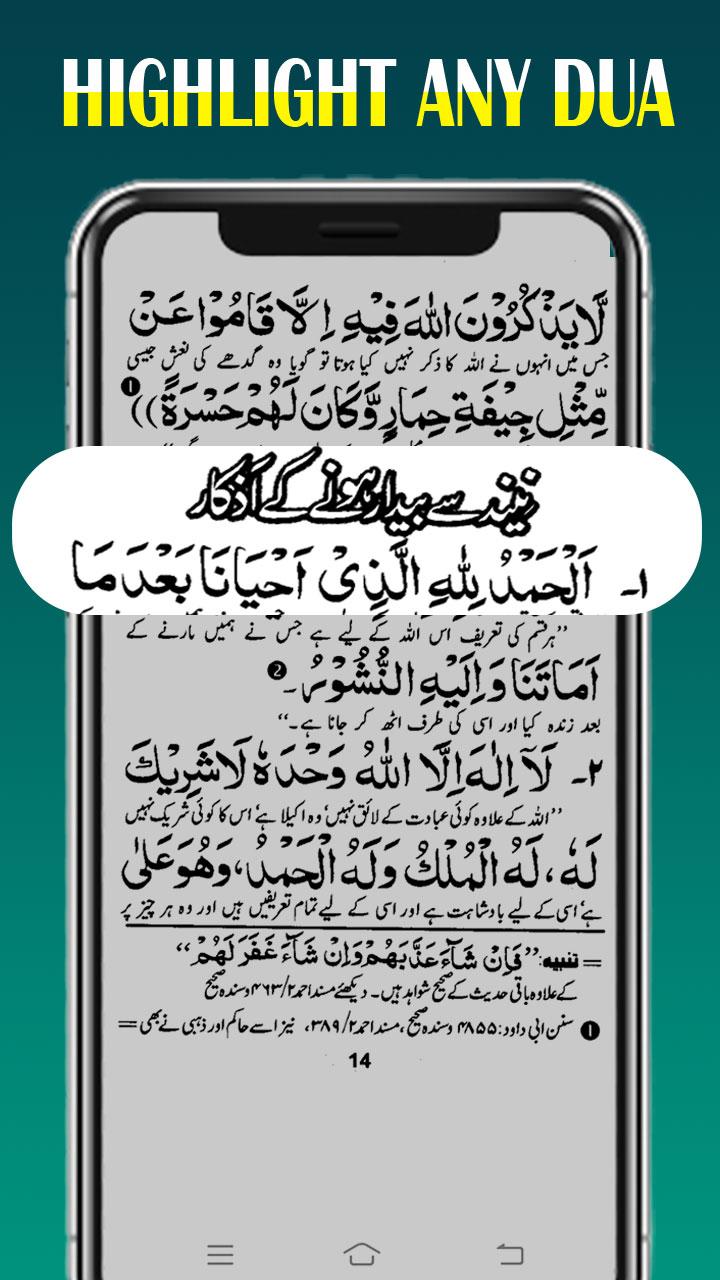 HIGHLIGHT ANY DUA
لَّا يَذْكُرُوْنَ اللهَ فِيْهِ اِلَّا قَامُوْا عَنْ
جس میں انہوں نے اللہ کا ذکر نہیں کیا ہوتا تو گویا وہ گدھے کی نعش جیسی
مِّثْلِ جِيْفَةِ حِمَارٍ وَّكَانَ لَهُمْ حَسْرَةً)) ❶
نیند سے بیدار ہونے کے اذکار
١۔ اَلْحَمْدُ لِلّٰهِ الَّذِىْ اَحْيَانَا بَعْدَ مَا
’’ہر قسم کی تعریف اس اللہ کے لیے ہے جس نے ہمیں مارنے کے
اَمَاتَنَا وَاِلَيْهِ النُّشُوْرُ۔ ❷
بعد زندہ کیا اور اسی کی طرف اٹھ کر جانا ہے۔‘‘
٢۔ لَآ اِلٰهَ اِلَّا اللهُ وَحْدَهٗ لَا شَرِيْكَ
’’اللہ کے علاوہ کوئی عبادت کے لائق نہیں‘ وہ اکیلا ہے‘ اس کا کوئی شریک نہیں
لَهٗ، لَهُ الْمُلْكُ وَلَهُ الْحَمْدُ، وَهُوَ عَلٰى
ہے‘ اسی کے لیے بادشاہت ہے اور اسی کے لیے تمام تعریفیں ہیں اور وہ ہر چیز پر
= تنبیہ: ’’فَاِنْ شَآءَ عَذَّبَهُمْ وَاِنْ شَآءَ غَفَرَ لَهُمْ‘‘
کے علاوہ باقی حدیث کے صحیح شواہد ہیں۔ دیکھئے مسند احمد ٤٦٣/٢ وسندہ صحیح
❶ سنن ابی داود: ٤٨٥٥ وسندہ صحیح، مسند احمد ٣٨٩/٢، نیز اسے حاکم اور ذہبی نے بھی =
14